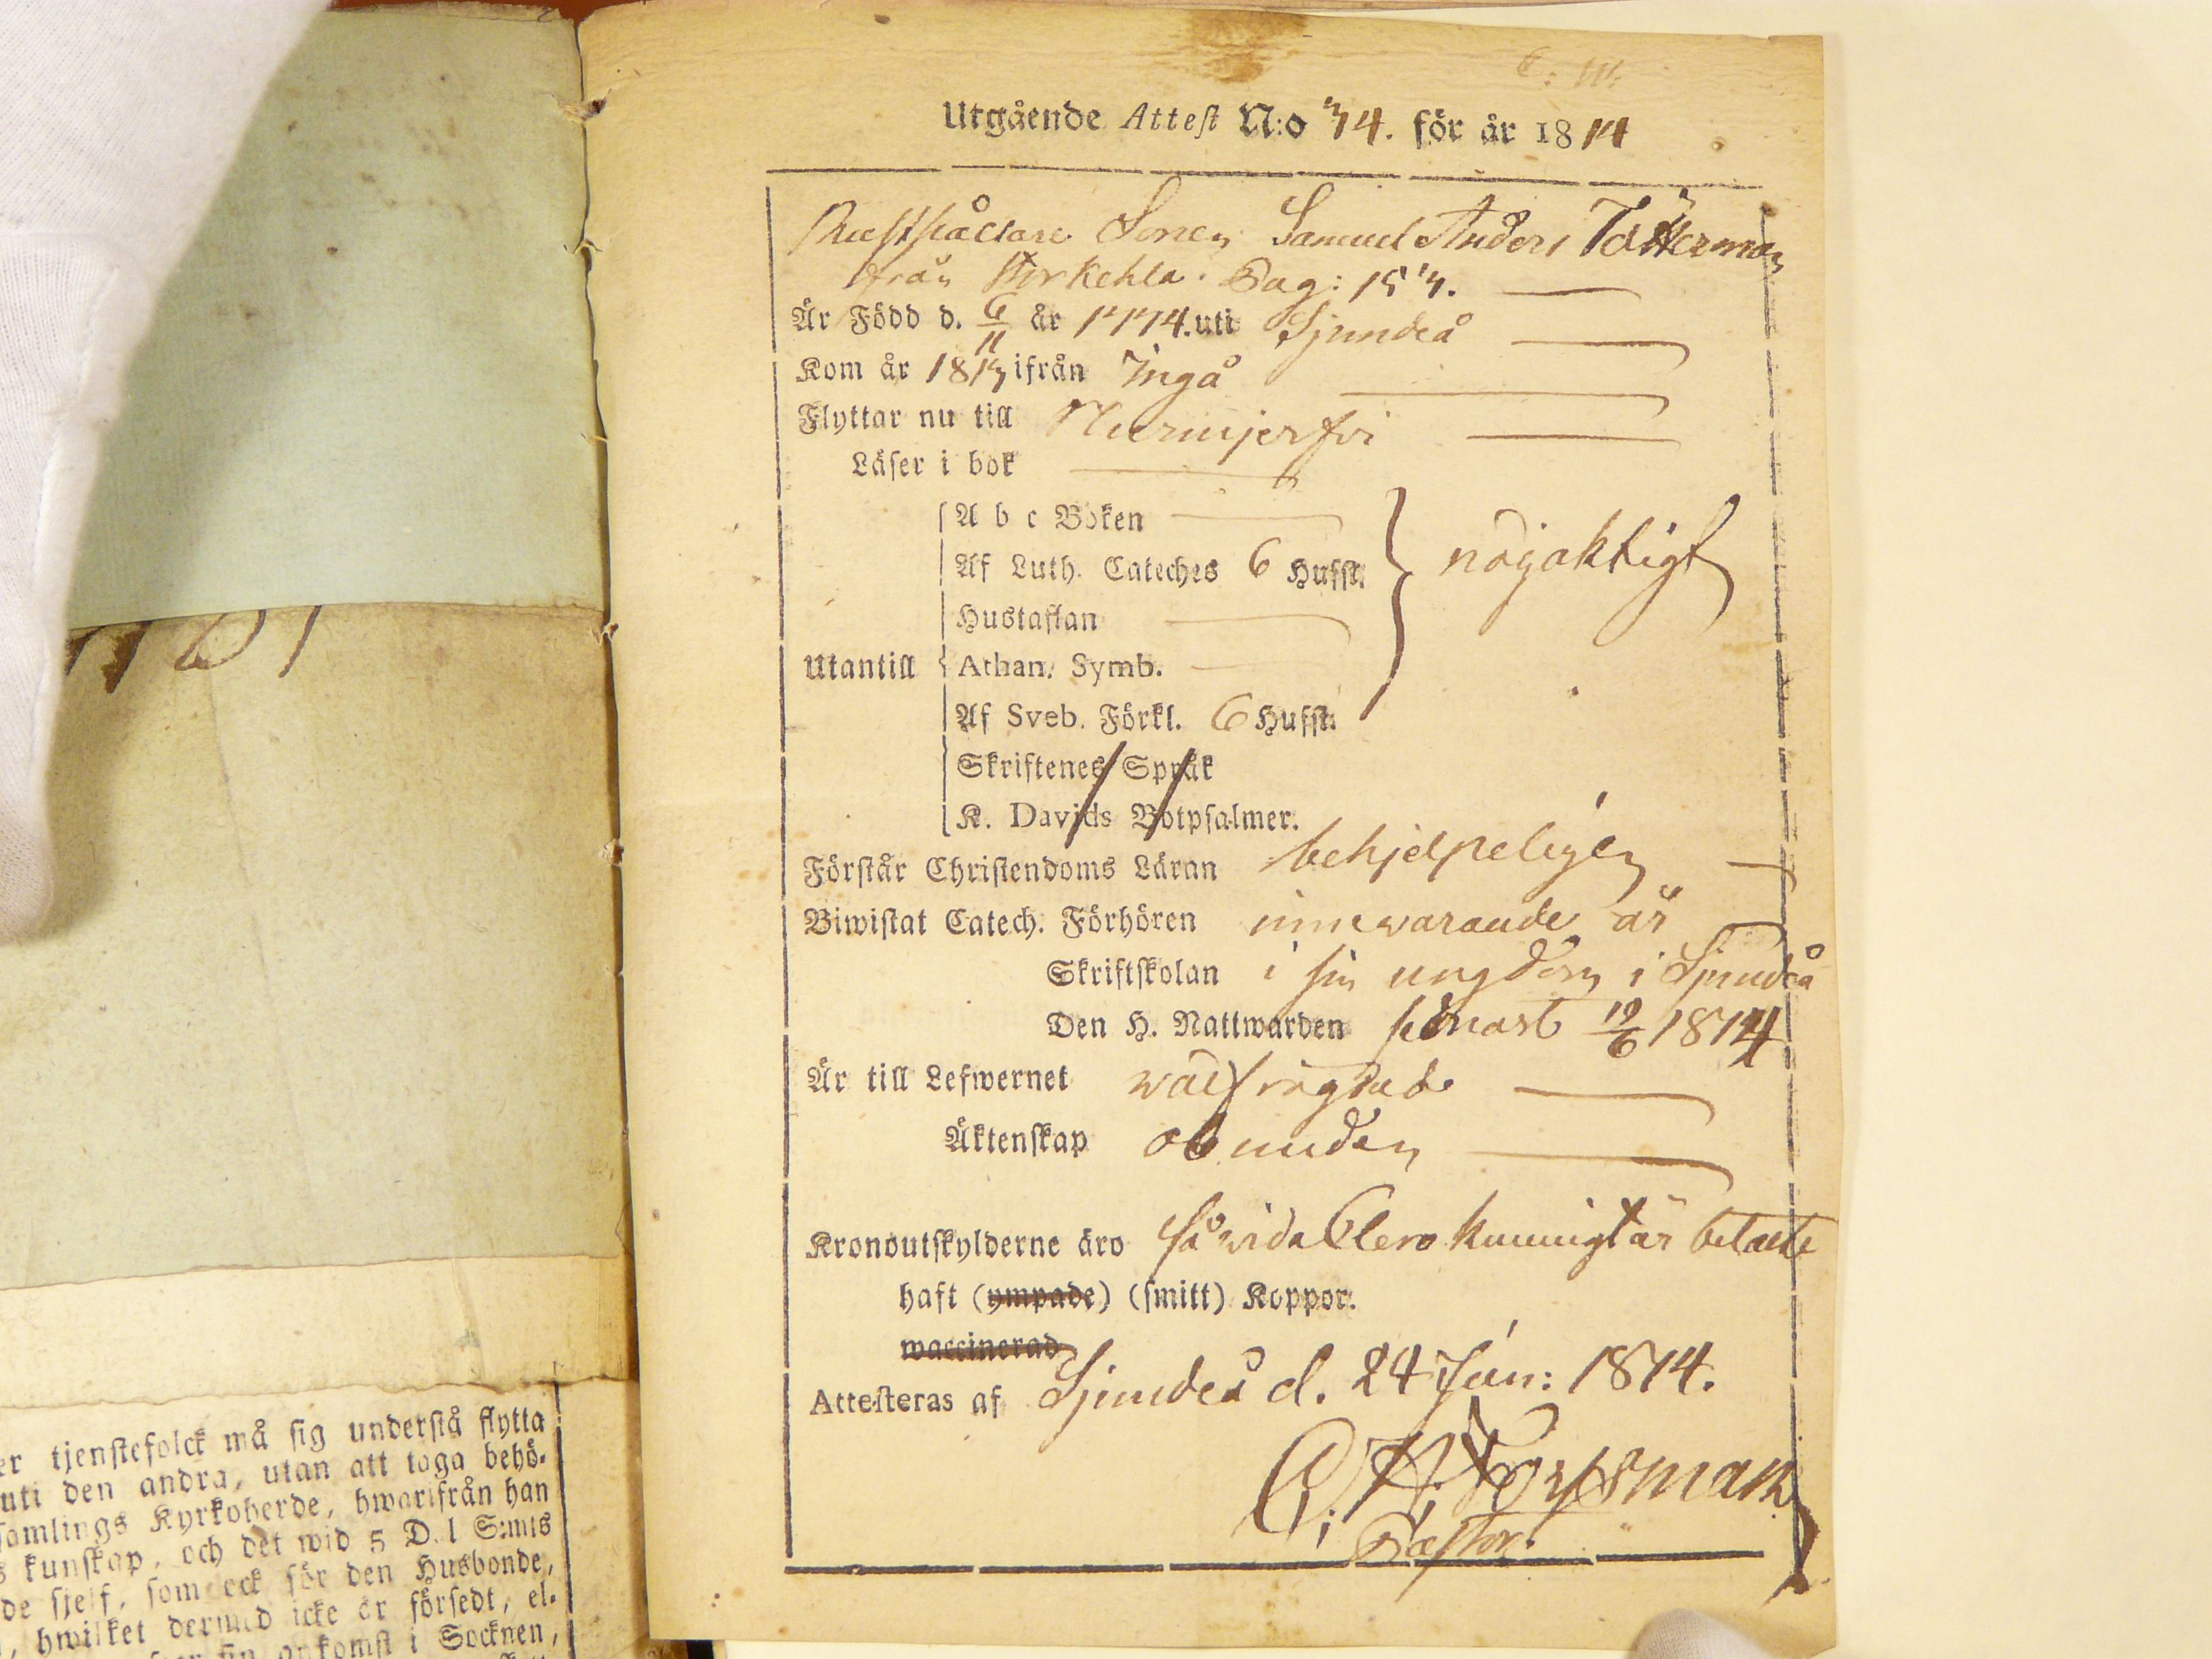 Utgående Attest N:o 74. för år 1814
Rusthållare Sonen Samuel Anders
från Storkehla. Pag: 157.
Är Född d. 6/11 år 1774. uti Sjundeå
Kom år 1813 ifrån Ingå
Flyttar nu till Nurmijerfvi
Läser i bok
A b c Boken
Af Luth. Cateches 6 Hufst. nöjaktigt
Hustaflan
Utantill Athan. Symb.
Af Sveb. Förkl. 6 Hufst.
Skriftenes Språk
K. Davids Botpsalmer.
Förstår Christendoms Läran behjelpeligen
Biwistat Catech. Förhören innewarande år
Skriftskolan i sin ungdom i Sjundeå
Den H. Nattwarden senast 19/6 1814
Är till Lefwernet wälfrägdad
Äktenskap obunden
Kronoutskylderne äro så vida Clero kunnigt är betalte
haft (ympade) (smitt) Koppor.
waccinerad
Attesteras af Sjundeå d. 24 Jun: 1814.
Forssman
Pastor.
er tjenstefolck må sig understå flytta
uti den andra, utan att taga behö-
samlings Kyrkoherde, hwarifrån han
s kunskap, och det wid 5 D. l S:mts
de sjelf, som ock för den Husbonde,
, hwilket dermed icke är försedt, el-
sin ankomst i Socknen,